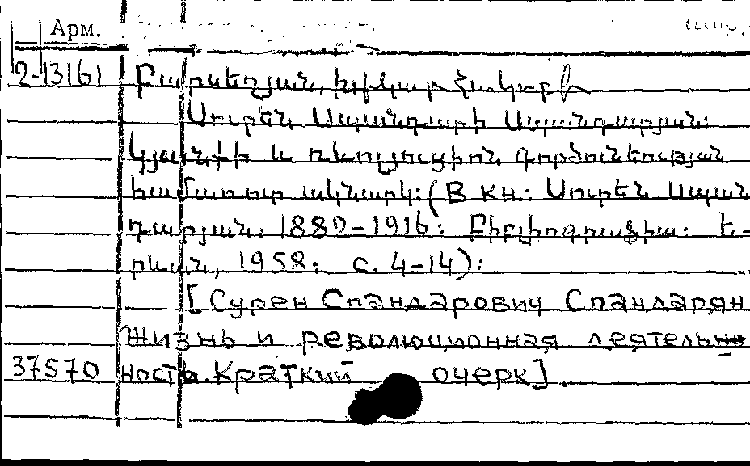 Арм.
2-13161 Բարսեղյան, Խիկար Հակոբի
Սուրեն Սպանդարի Սպանդարյան:
Կյանքի և ռևոլյուցիոն գործունեության
համառոտ ակնարկ: (В кн.: Սուրեն Սպան
դարյան. 1882-1916: Բիբլիոգրաֆիա: Ե-
րևան, 1958: с. 4-14):
[Сурен Спандарович Спандарян
Жизнь и революционная деятельн
37570 ность. Краткий очерк]